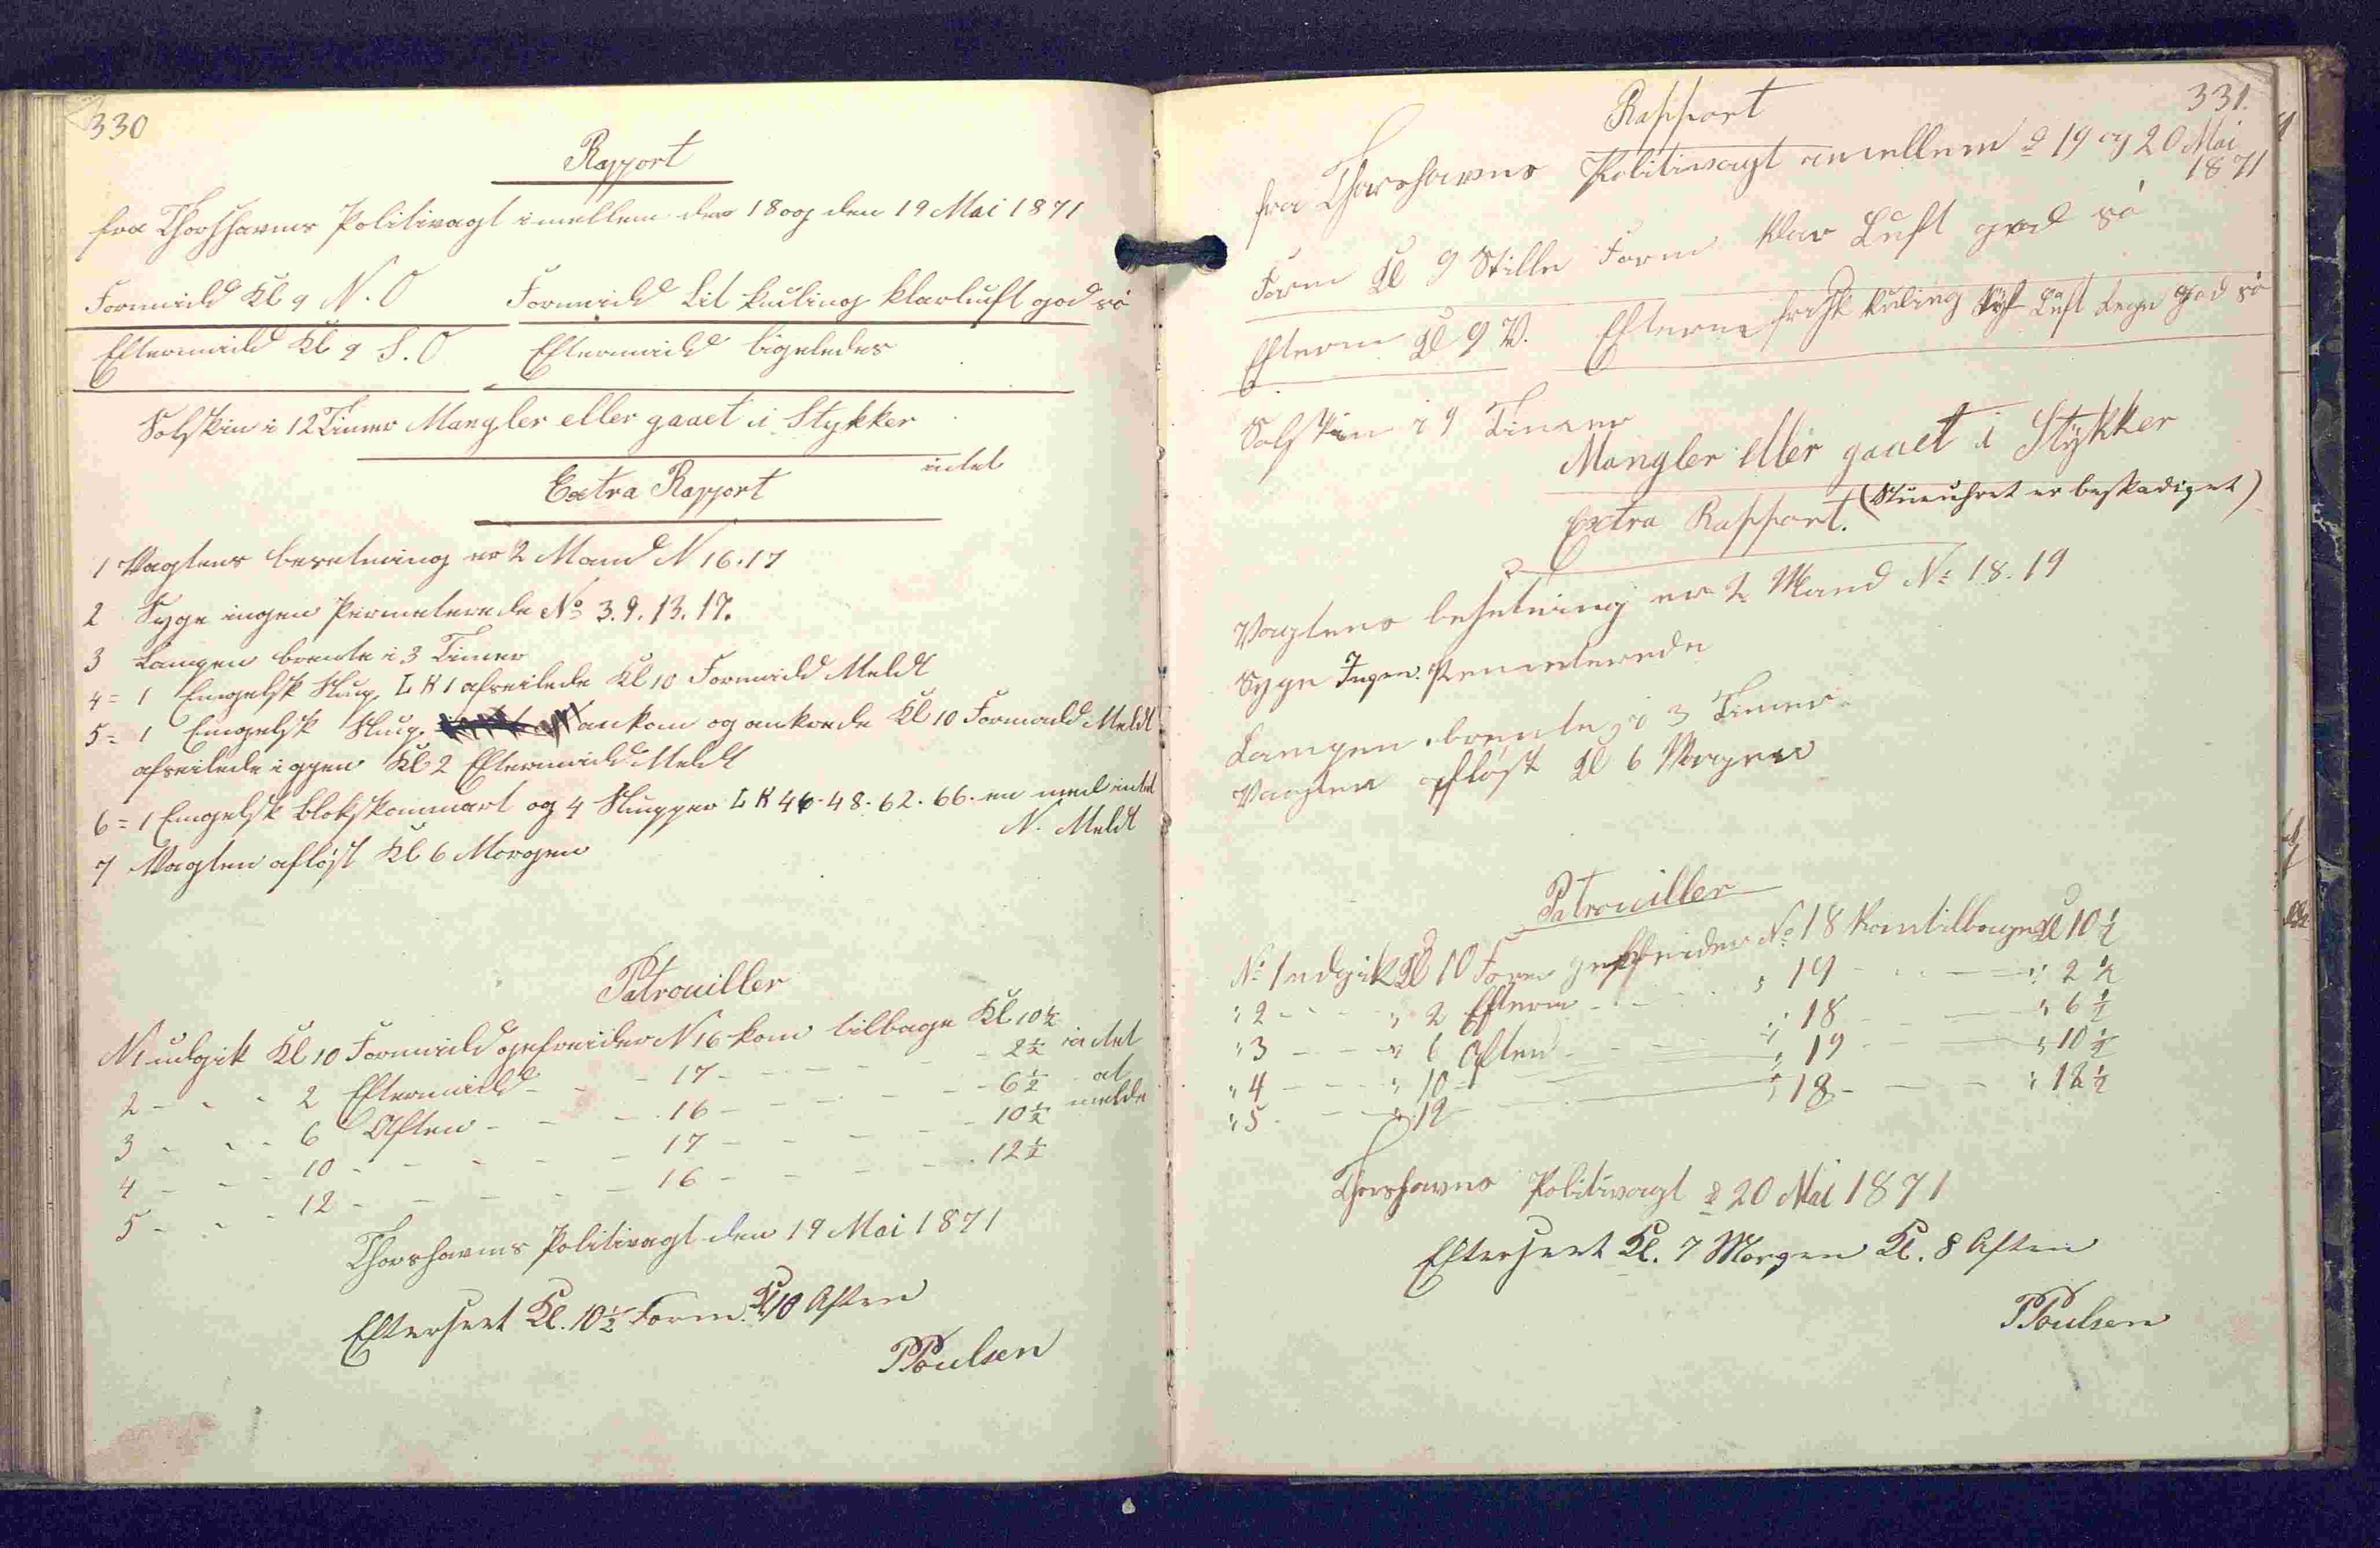 330
Rapport
fra Thorshavns Politivagt imellem den 18 og den 19 Mai 1871
Formidd Kl 9 N. O Formidd Lit kuling klarluft god sö
Eftermidd Kl 9 S. O Eftermidd ligeledes
Solskin i 12 Timer Mangler eller gaaet i Stykker
intet
Extra Rapport
1 Vagtens besetning er 2 Mand N 16. 17
2 Syge ingen Permeterede No 3. 9. 13. 17.
3 Lampen brente i 3 Timer
4 = 1 Engelsk Slup. L K 1 afseilede Kl 10 Formidd Meldt
5 = 1 Engelsk Slup. ankom og ankrede Kl 10 Formidd Meldt
afseilede iggen Kl 2 Eftermidd Meldt
6 = 1 Engelsk Blokskonnart og 4 Slupper L K 46. 48. 62. 66. en med intet
N. Meldt
7 Vagten afløst Kl 6 Morgen
Patrouiller
N 1 udgik Kl 10 Formidd gefreider N 16 kom tilbage Kl 10½
2 - - - 2 Eftermidd - - - 17 - - - - 2½ intet
3 - - - 6 Aften - - - 16 - - - - 6½ at
4 - - - 10 - - - - 17 - - - - 10½ melde
5 - - - 12 - - - - 16 - - - - 12½
Thorshavns Politivagt den 19 Mai 1871
Efterseet Kl. 10½ Form. Kl 10 Aften
PPoulsen
331.
Rapport
fra Thorshavns Politivagt imellem d 19 og 20 Mai
1871
Form Kl 9 Stille Form klar Luft god sö
Efterm Kl 9 V. Efterm frisk kuling Luft god sö
Solskin i 9 Timer
Mangler eller gaaet i Stykker
(Stueuhret er beskadiget)
Extra Rapport.
Vagtens besetning er 2 Mand No 18. 19
Syge Ingen. Permeterede
Lampen brente i 3 Timer.
Vagten afløst Kl 6 Morgen
Patrouiller
No 1 udgik Kl 10 Form gefreider No 18 kom tilbage Kl 10½
" 2 - - - " 2 Efterm - - - " 19 - - - " 2½
" 3 - - - " 6 Aften - - - " 18 - - - " 6½
" 4 - - - " 10 - - - " 19 - - - " 10½
" 5 - - - " 12 - - - " 18 - - - " 12½
Thorshavns Politivagt d 20 Mai 1871
Efterseet Kl. 7 Morgen Kl. 8 Aften
PPoulsen